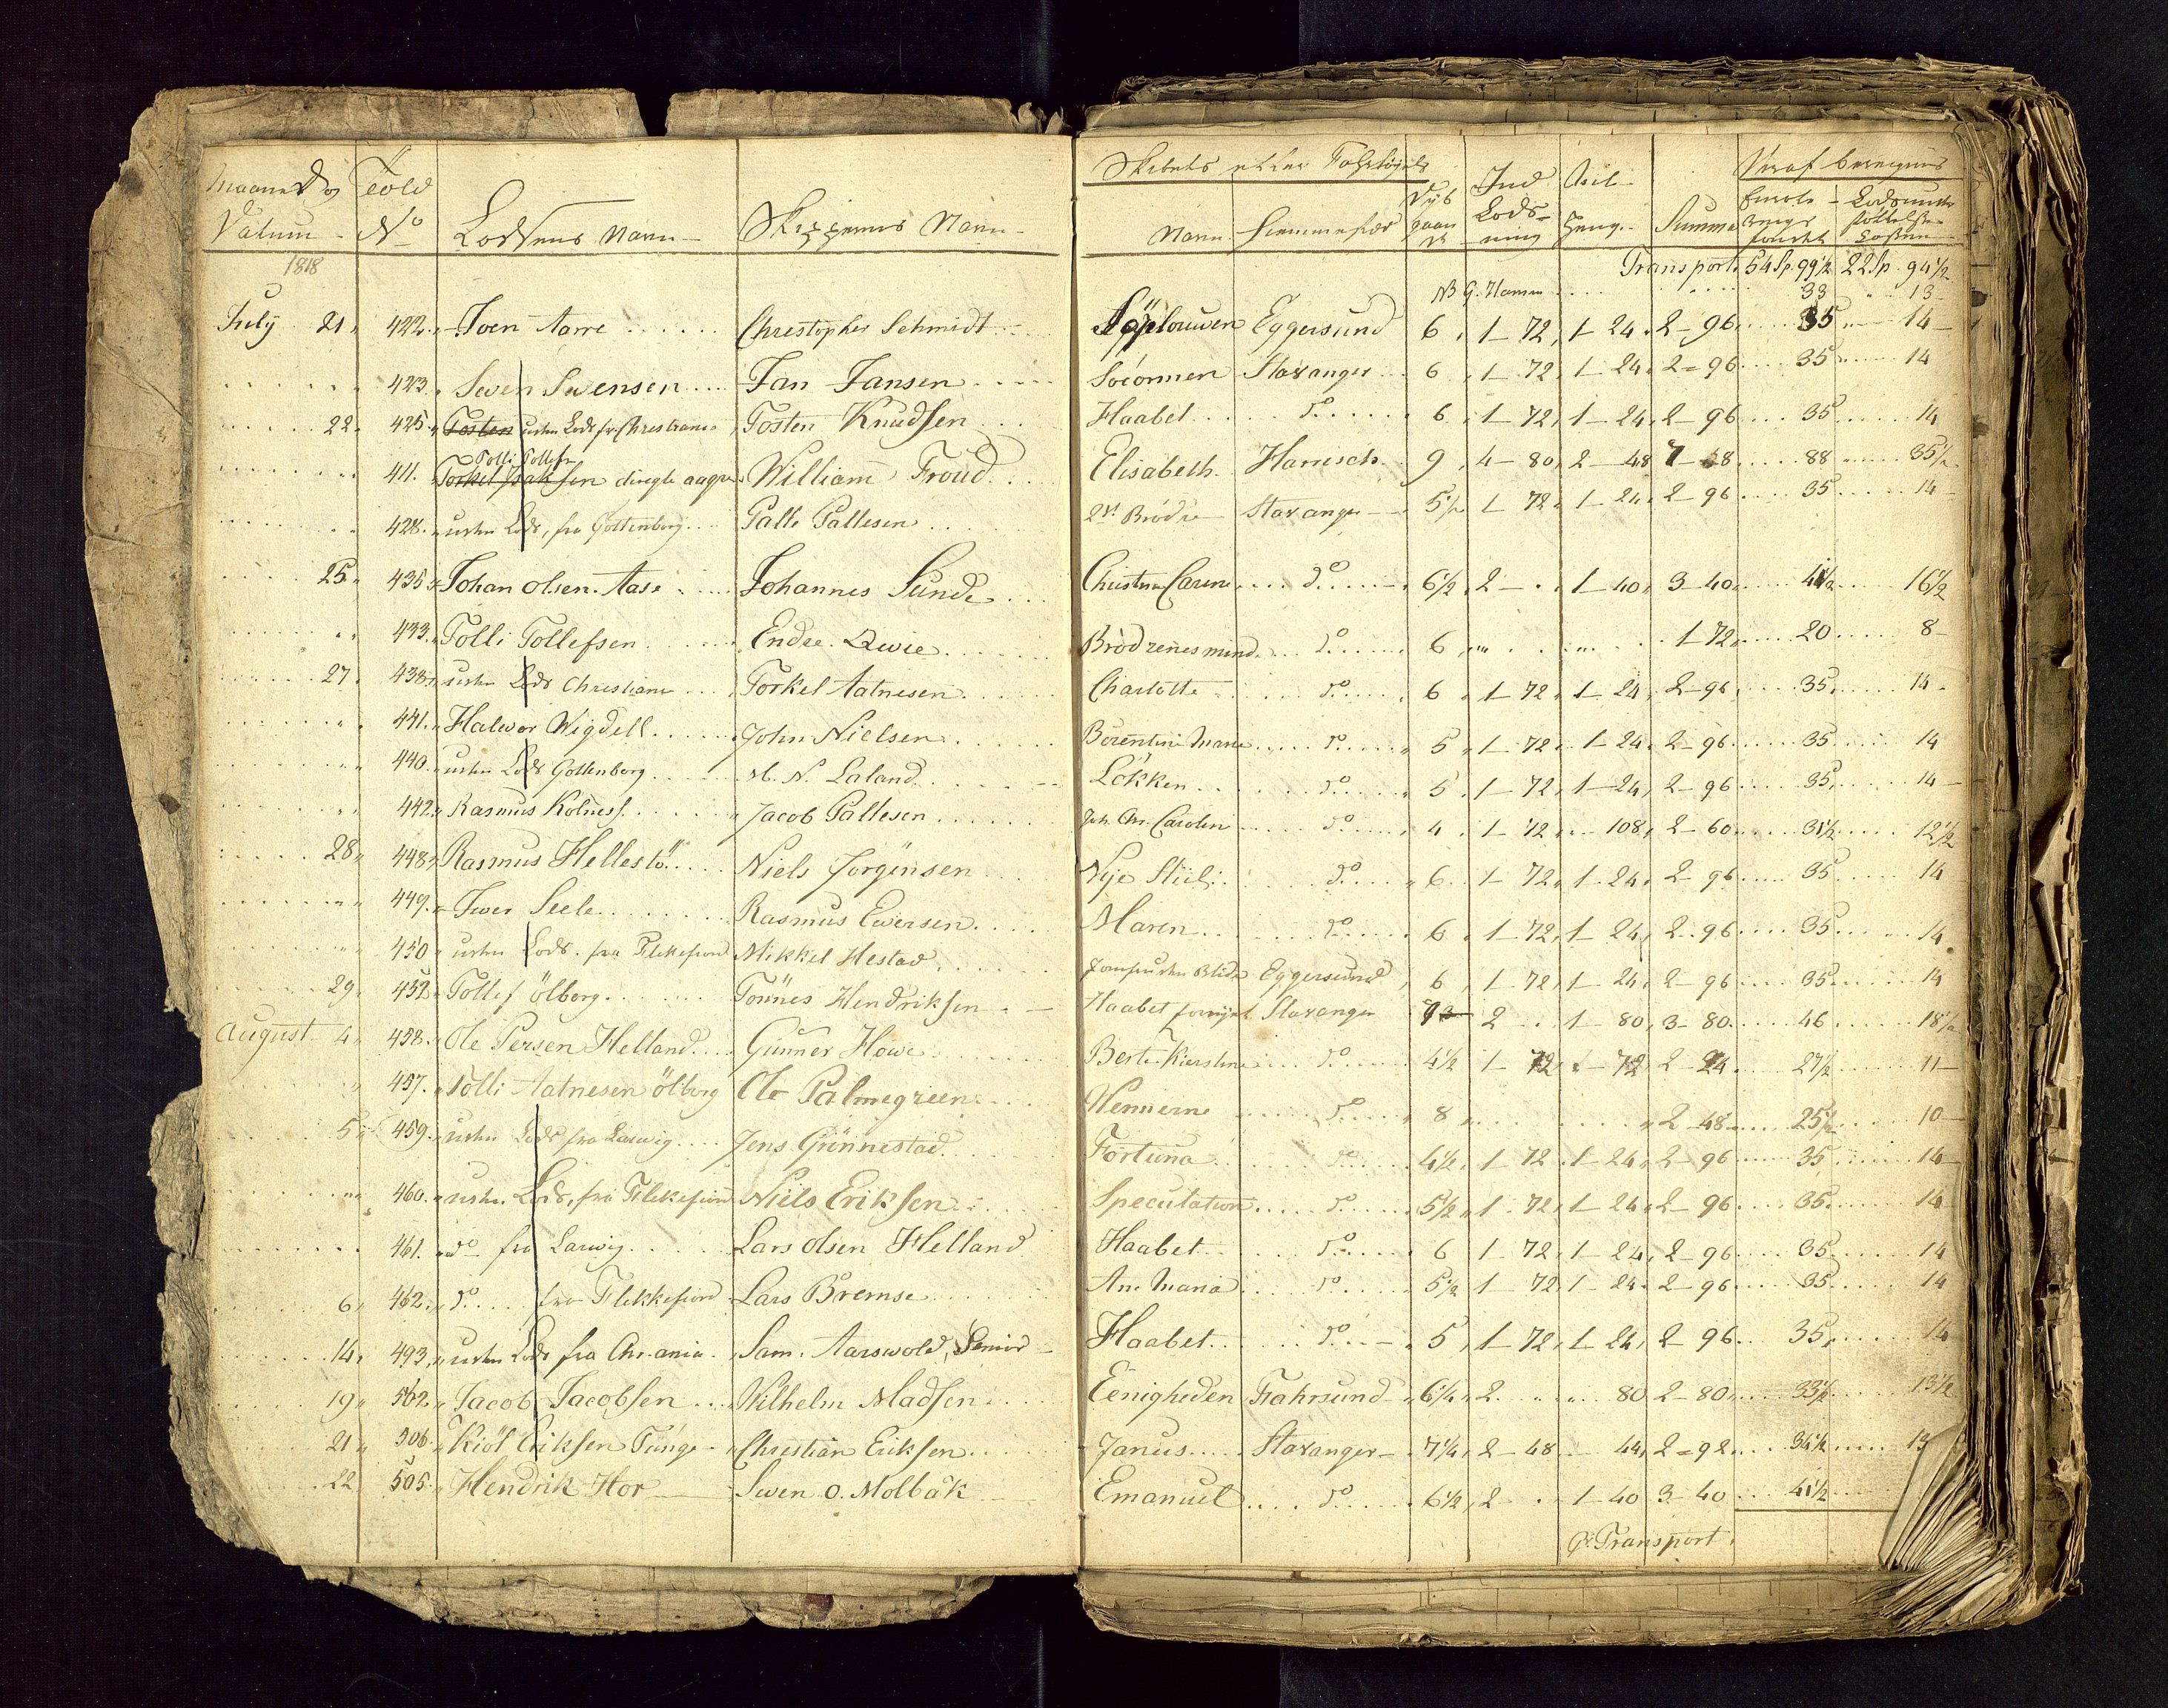 Maaned og Datum Told No Lodsens Navn Skippernes Navn Skibets eller Fartøyets Navn Hiemmestæd Dyb gaaende Ind Lodsning Summa Heraf beregnes
1818 Transport 54 Sp 99½ 22 Sp 94½
NB G. Hansen 33 13
July 21 422 Joen Aarre Christopher Schmidt Eggersund 6 1 - 72 1 - 24 2 - 96 35 14
423 Swen Swensen Jan Jansen Stavanger 6 1 - 72 1 - 24 2 - 96 35 14
22 425 Tosten uden Lods fr Christiania Tosten Knudsen Haabet do 6 1 - 72 1 - 24 2 - 96 35 14
Tolli Tollefsen
411 Torkel Isaksen William Froud Elisabeth Harwich 9 4 - 80 2 - 48 88 35½
428 uden Lods, fra Gottenborg Palle Pallesen 2de Brödre Stavanger 5½ 1 72 1 - 24 2 - 96 35 14
25 435 Johan Olsen Aase Johannes Sunde Christine Carene do 6½ 2 - 1 - 40 3 - 40 41½ 16½
433 Tolli Tollefsen Endre Qwie Brödrenes minde do 6 1 - 72 20 8
27 438 uden Lods Christiania Torkel Aatnesen Charlotte do 6 1 - 72 1 - 24 2 - 96 35 14
441 Halwor Wigdell John Nielsen Marie do 5 1 - 72 1 - 24 2 - 96 35 14
440 uden Lods Gottenborg N. Laland Lökken do 5 1 - 72 1 - 24 2 - 96 35 14
442 Rasmus Kolness Jacob Pallesen Joh. Chr. Carolin do 4 1 - 72 108 2 - 60 31½ 12½
28 448 Rasmus Hellestö Niels Jorgensen Nye Stiil do 6 1 - 72 1 - 24 2 - 96 35 14
449 Iwer Seele Rasmus Ewersen Maren do 6 1 - 72 1 - 24 2 - 96 35 14
450 uden Lods fra Flekkefiord Mikkel Hestad Eggersund 6 1 - 72 1 - 24 2 - 96 35 14
29 453 Tollef ölberg Tönnes Hendriksen Haabet Stavanger 2 1 - 80 3 - 80 46 18½
August 4 458 Ole Persen Helland Gunner Howe Berte Kierstine do 4½ 1 72 72 2 24 27½ 11
457 Tolli Aatnesen ölberg Ole Palmegreen do 8 2 - 48 25½ 10
5 459 uden Lods fra Larwig Jens Grönnestad Fortuna do 4½ 1 - 72 1 - 24 2 - 96 35 14
460 uden Lods, fra Flekkefiord Niels Eriksen Speculation do 5½ 1 - 72 1 - 24 2 - 96 35 14
461 do fra Larwig Lars Olsen Helland Haabet do 6 1 - 72 1 - 24 2 - 96 35 14
6 462 do fra Flekkefiord Lars Bremse Ane Maria do 5½ 1 - 72 1 - 24 2 - 96 35 14
14 493 uden Lods fra Chr.ania Sam. Aarswold, Senior Haabet do 5 1 - 72 1 - 24 2 - 96 35 14
19 502 Jacob Jacobsen Wilhelm Madsen Eenigheden Fahrsund 6¼ 2 80 2 - 80 33½ 13½
21 506 Kiöl Eriksen Tunge Christian Eriksen Janus Stavanger 7¼ 2 - 48 44 2 - 92 34½ 13
22 505 Hendrik Hor Swen O. Molbak Emanuel do 6½ 2 1 - 40 3 - 40 41½
Transport